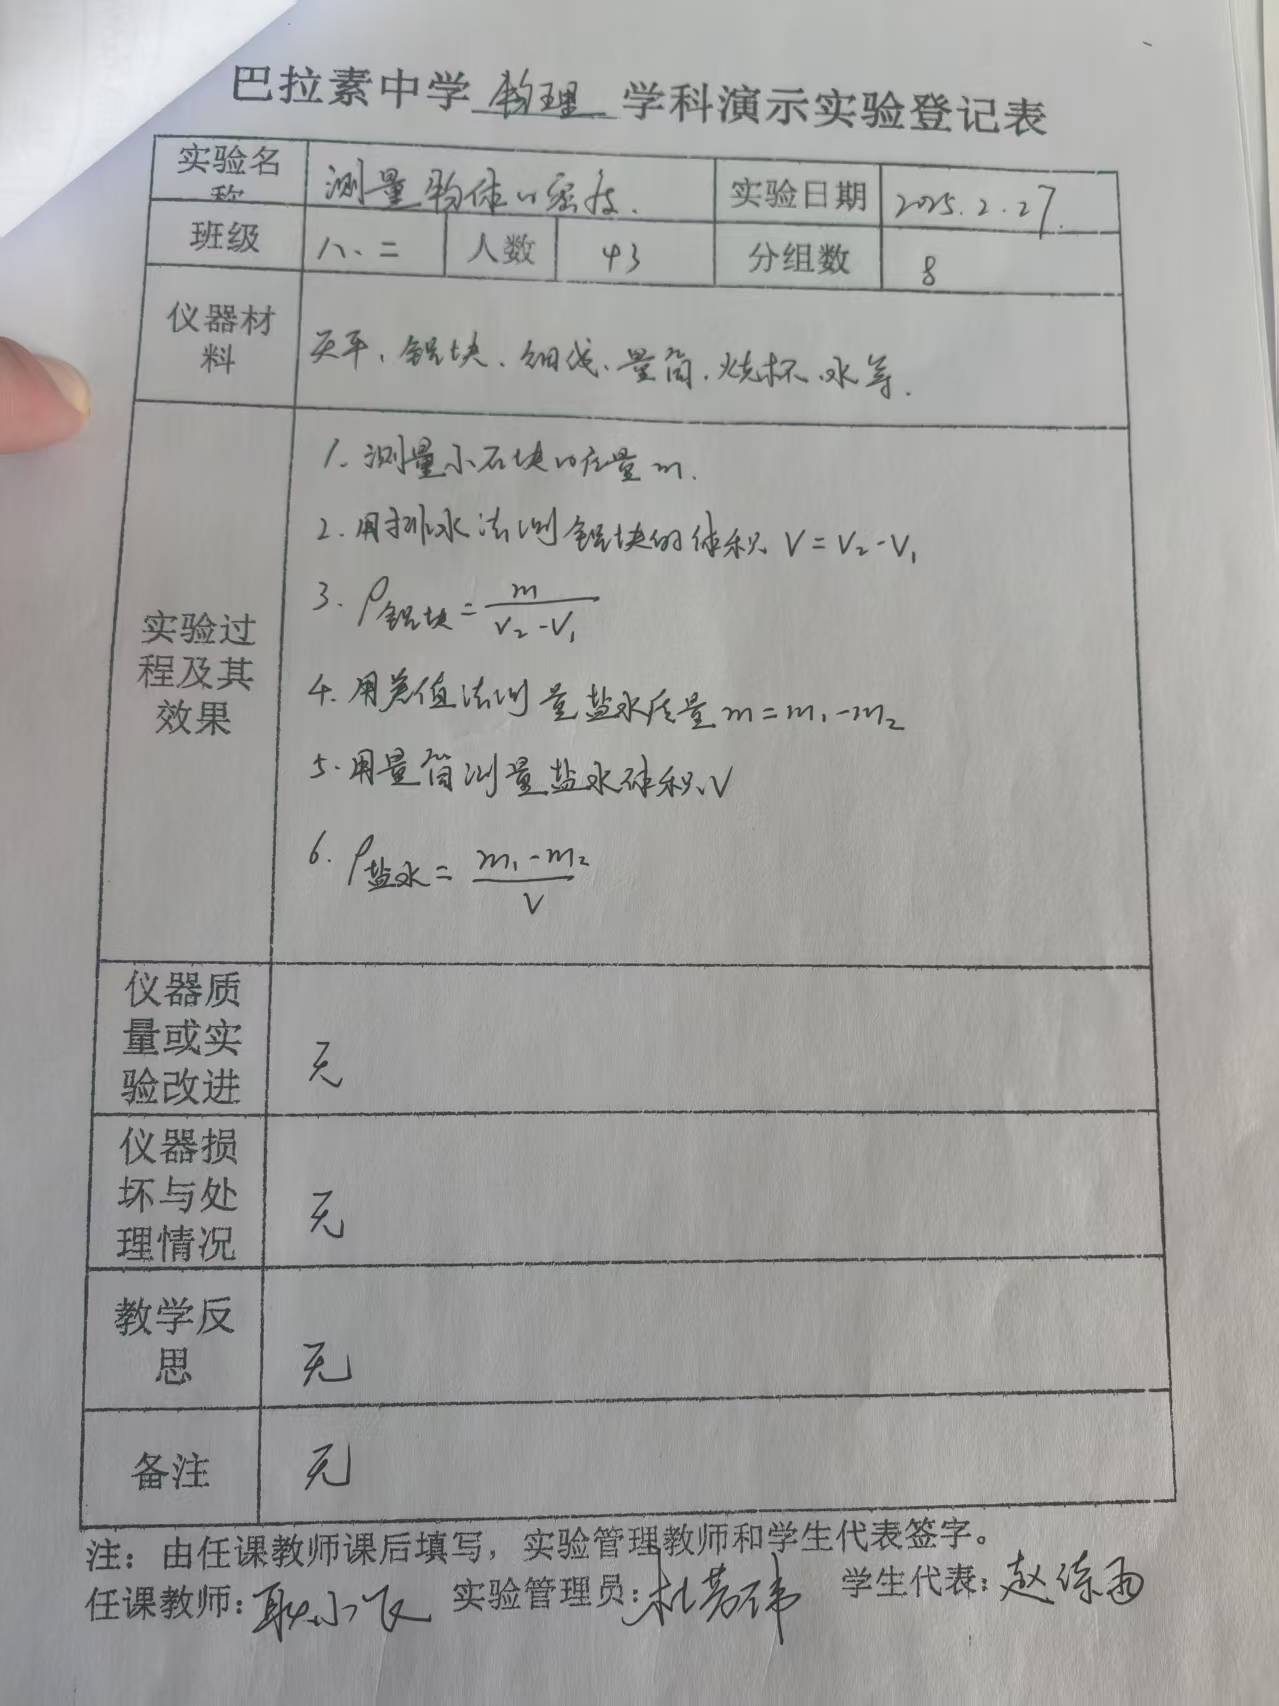 巴拉素中学 物理 学科演示实验登记表
实验名称 测量物体的密度. 实验日期 2025.2.27.
班级 八、二 人数 43 分组数 8
仪器材料 天平、铝块、细线、量筒、烧杯、水等.
实验过程及其效果
1. 测量小石块的质量m.
2. 用排水法测铝块的体积 V=V₂-V₁
3. ρ铝块=m/(V₂-V₁)
4. 用差值法测量盐水质量m=m₁-m₂
5. 用量筒测量盐水体积V
6. ρ盐水=(m₁-m₂)/V
仪器质量或实验改进 无
仪器损坏与处理情况 无
教学反思 无
备注 无
注：由任课教师课后填写，实验管理教师和学生代表签字。
任课教师：耿小飞 实验管理员：杜 学生代表：赵